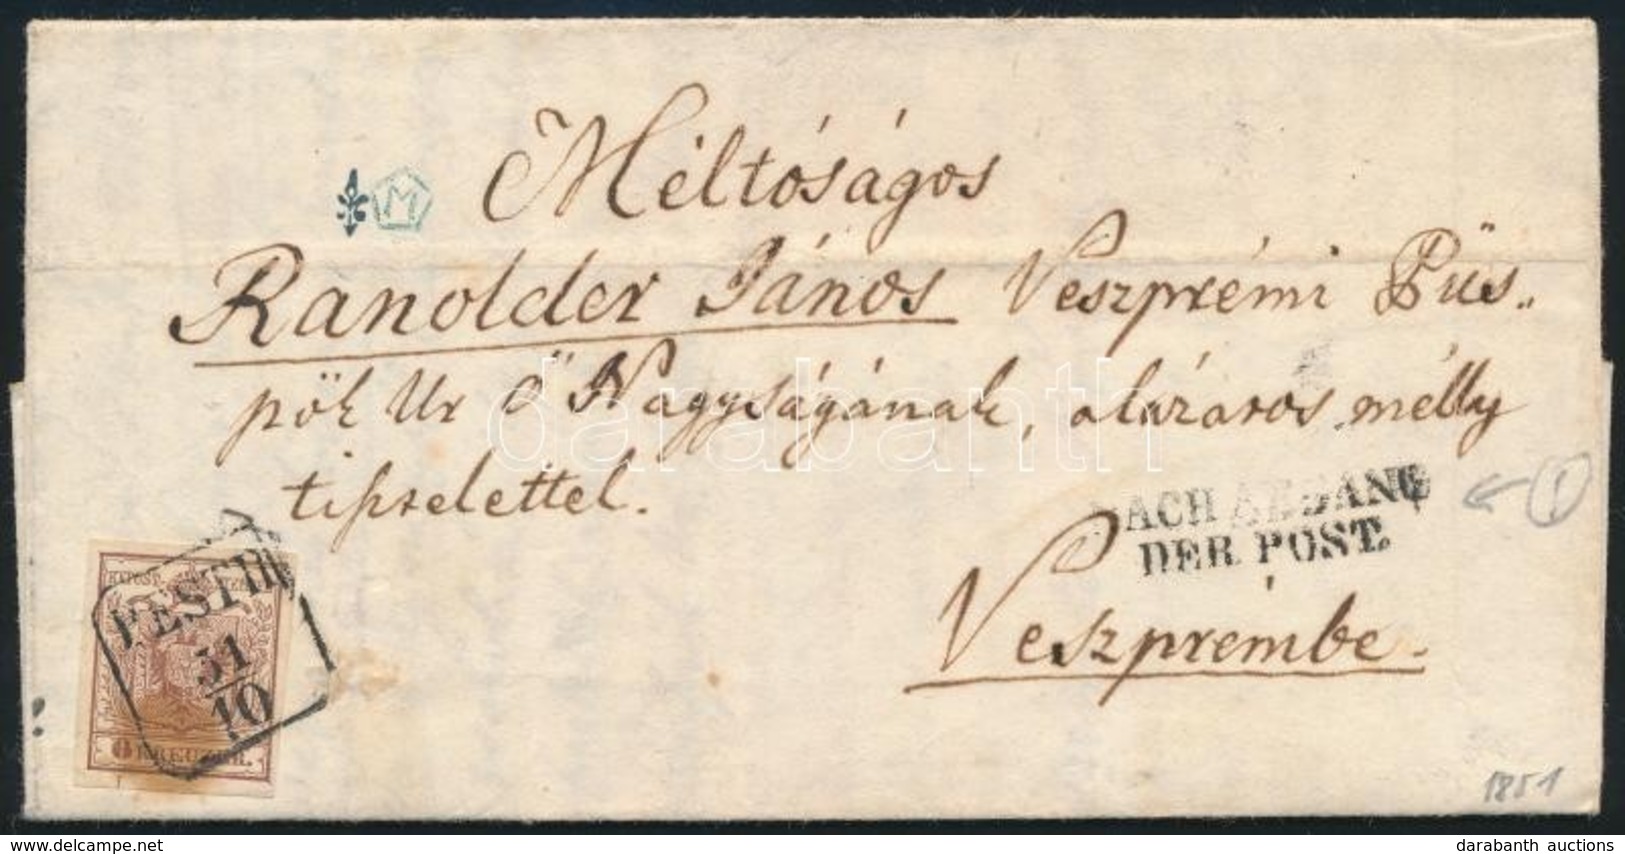 M
Méltóságos
Ranolder János Veszprémi Püs„
pök Ur Ő Nagyságának, alázatos mélly
tisztelettel.
NACH ABGANG
DER POST.
Veszprémbe.
PESTH
31
10
6 KREUZER.
1
1851
darabanth
delcampe.net
darabanth auctions